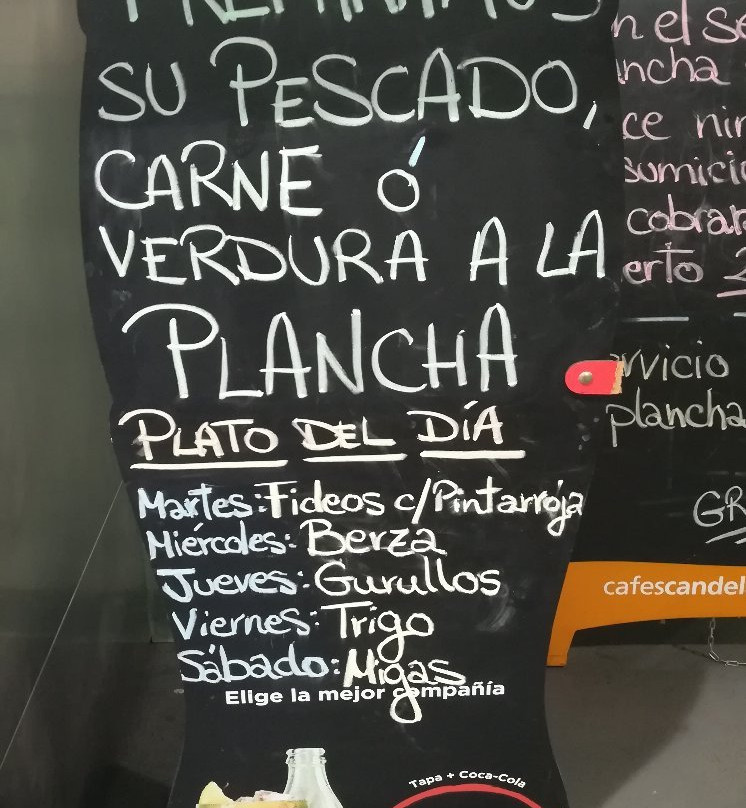 SU PESCADO,
CARNE Ó
VERDURA A LA
PLANCHA
PLATO DEL DÍA
Martes: Fideos c/Pintarroja
Miércoles: Berza
Jueves: Gurullos
Viernes: Trigo
Sábado: Migas
Elige la mejor compañía
Tapa + Coca-Cola
cobrar
plancha
cafescandel